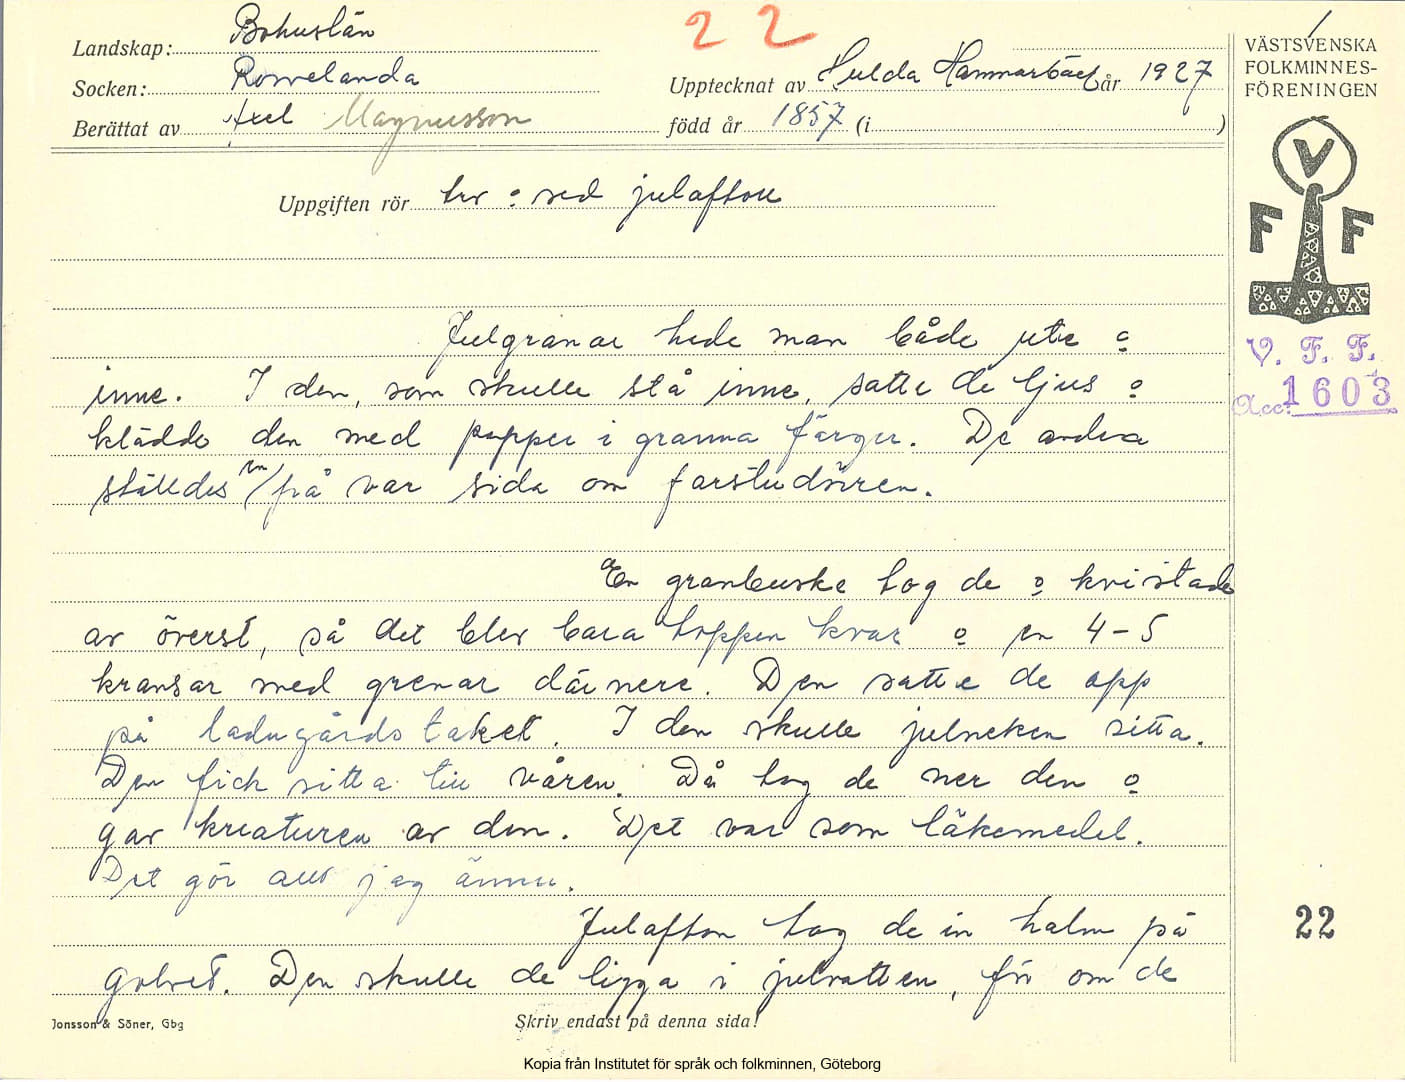 22
Landskap: Bohuslän
Socken: Romelanda
Upptecknat av Hulda Hammarbäck år 1927
Berättat av Axel Magnusson född år 1857 (i )
VÄSTSVENSKA
FOLKMINNES-
FÖRENINGEN
V
F F
V. F. F.
Acc. 1603
Uppgiften rör tro o sed julafton
Julgranar hade man både ute o
inne. I den, som skulle stå inne, satte de ljus o
klädde den med papper i granna färger. De andra
ställdes en på var sida om farstudörren.
En granbuske tog de o kvistade
av överst, så det blev bara toppen kvar o en 4-5
kransar med grenar där nere. Den satte de opp
på ladugårdstaket. I den skulle julneken sitta.
Den fick sitta till våren. Då tog de ner den o
gav kreaturen av den. Det var som läkemedel.
Det gör allt jag ännu.
Julafton tog de in halm på
golvet. Den skulle de ligga i julnatten, för om de
22
Jonsson & Söner, Gbg
Skriv endast på denna sida!
Kopia från Institutet för språk och folkminnen, Göteborg